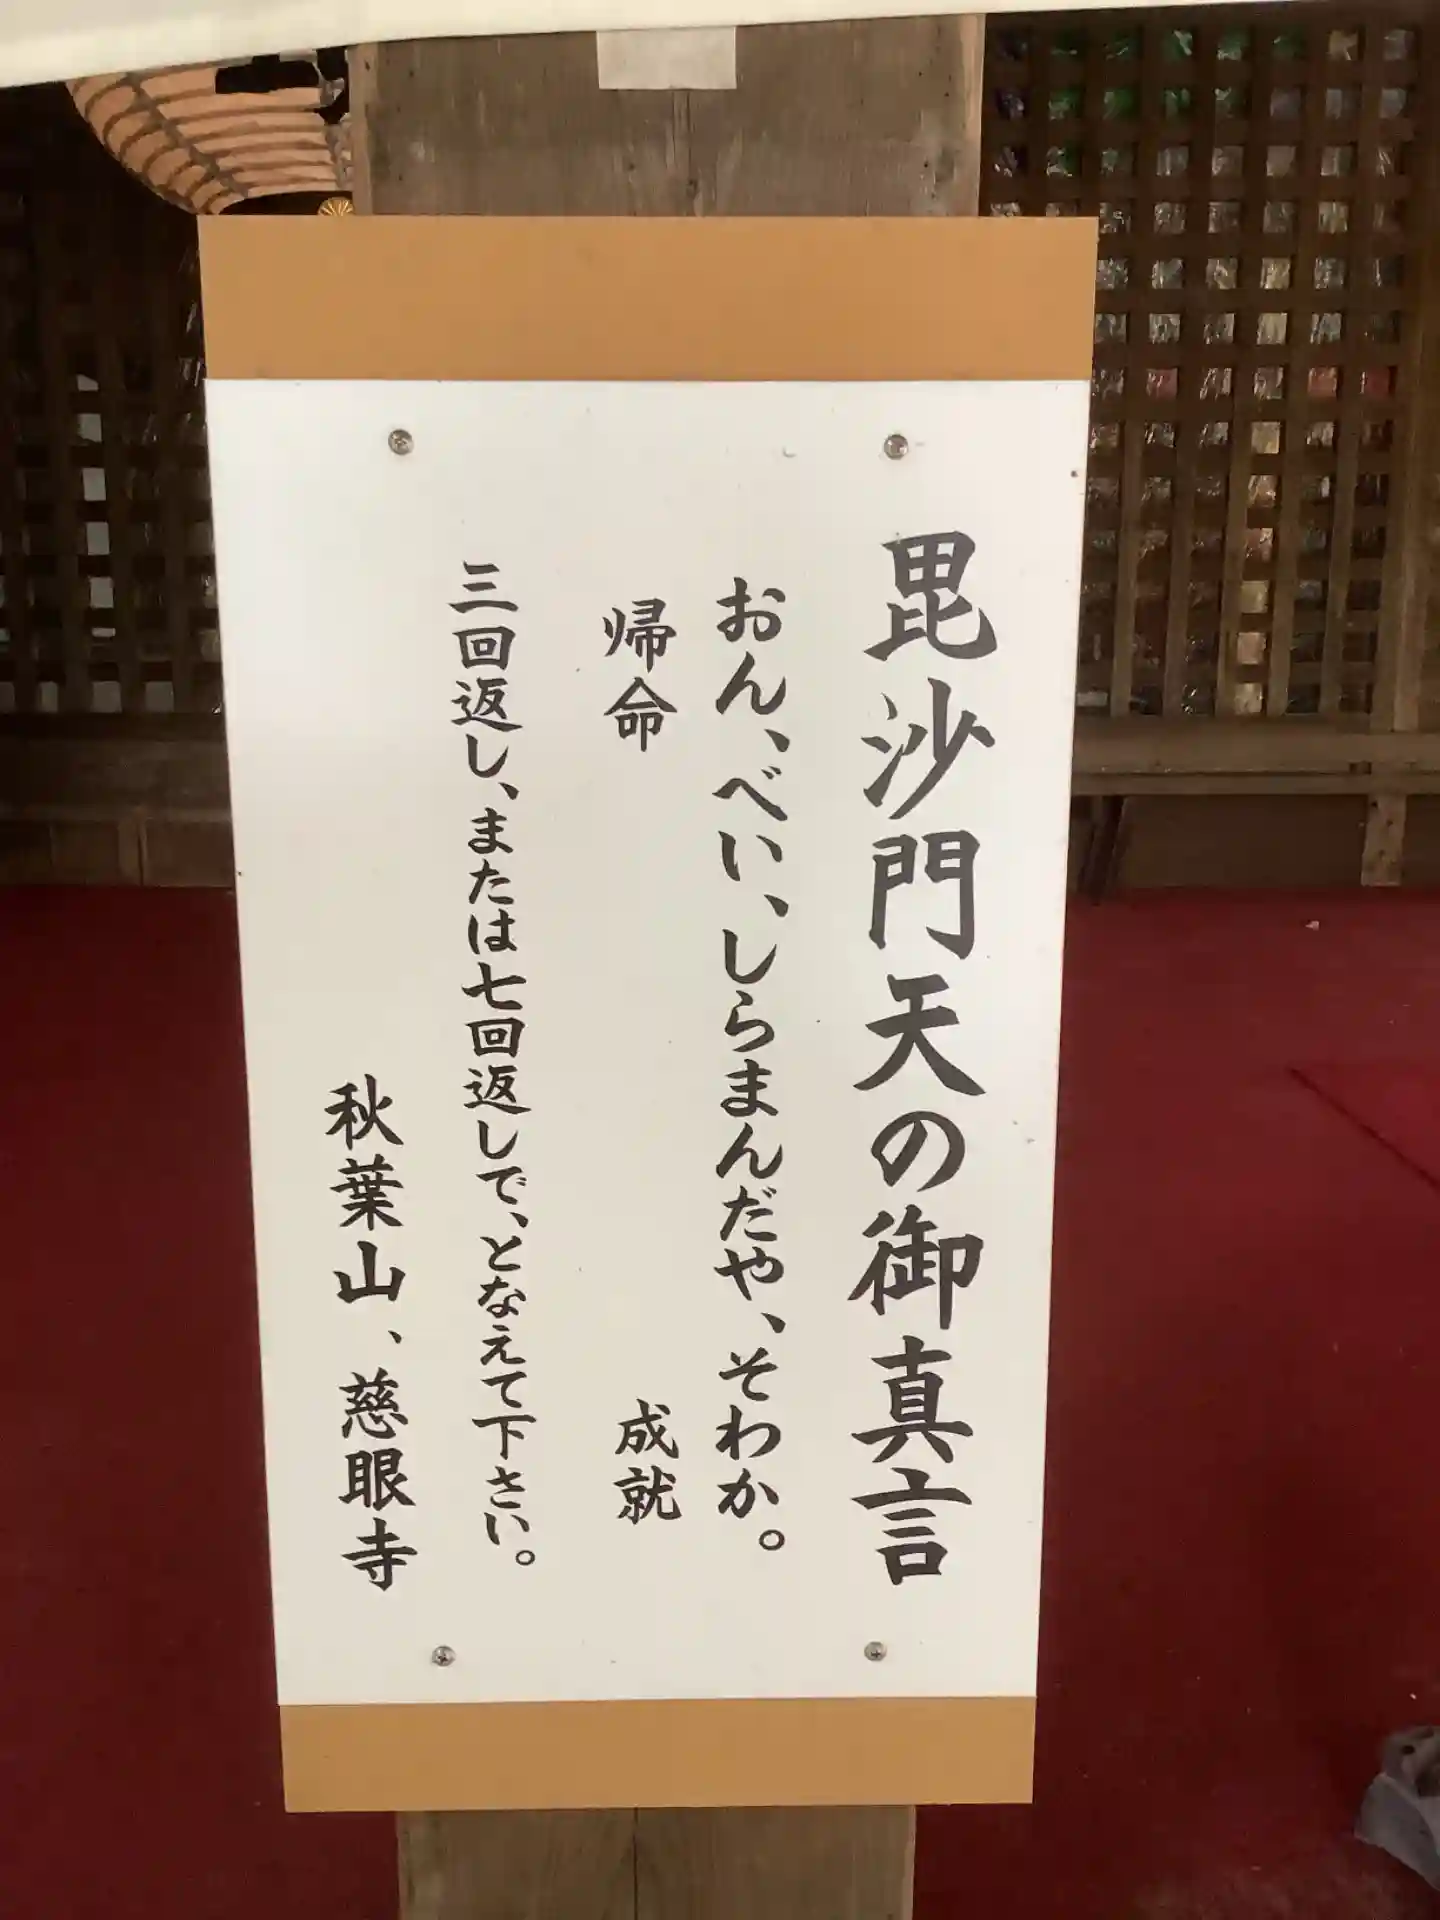 毘沙門天の御真言
おん、べい、しらまんだや、そわか。
帰命 成就
三回返し、または七回返しで、となえて下さい。
秋葉山、慈眼寺